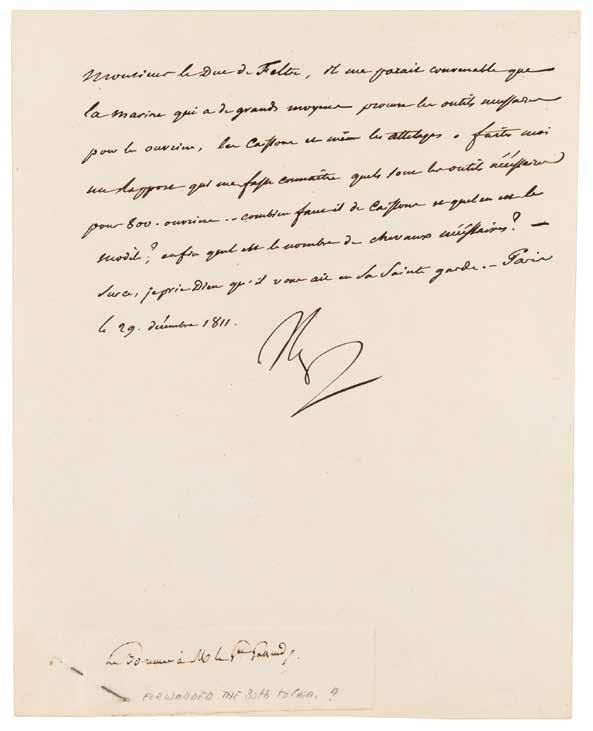 Monsieur le Duc de Feltre, il me parait convenable que
la marine qui a de grands moyens procure les outils necessaires
pour les ouvriers, les Caissons et même les attelages. faites moi
un Rapport qui me fasse connaître quels sont les outils nécéssaires
pour 800. ouvriers .. combien faut il de Caissons et quel en est le
modèle? enfin quel est le nombre de chevaux nécéssaires? —
Sur ce, je prie Dieu qu'il vous ait en sa Sainte garde. — Paris
le 29. décembre 1811.
Np
Le 30 à M. le
FORWARDED THE 30th to GEN. ?